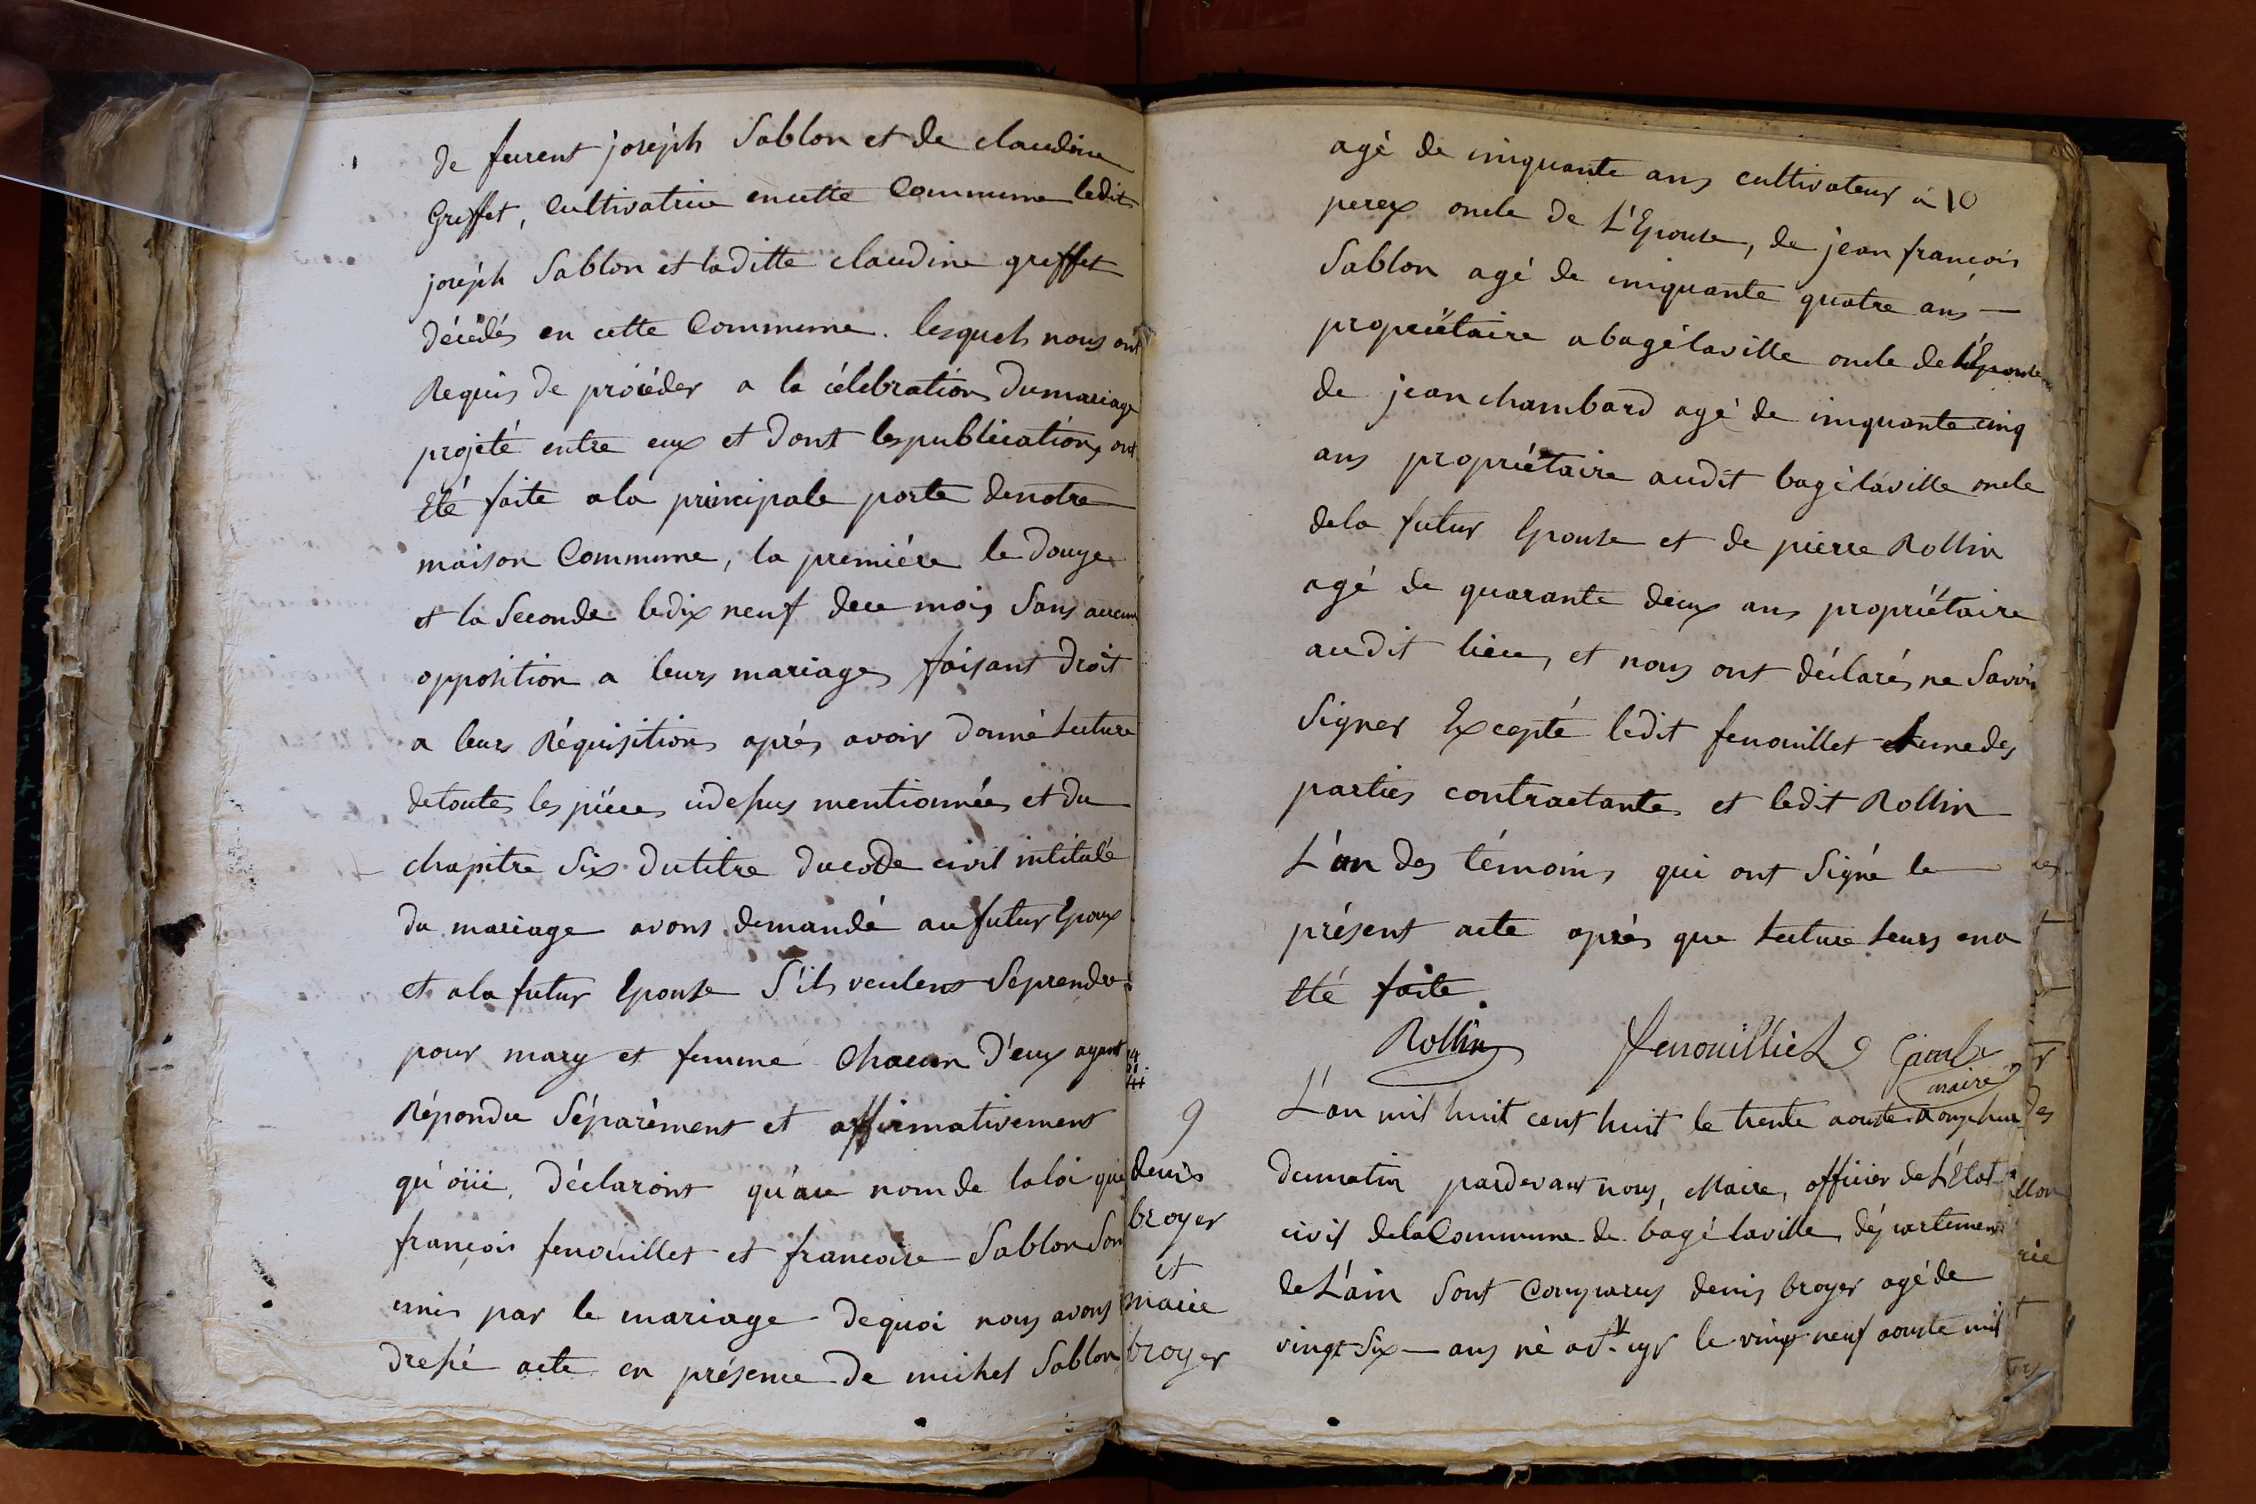 de furent joséph Sablon et de claudine
Greffet, Cultivatrice en cette Commune ledit
joséph Sablon et laditte claudine greffet
décédés en cette Commune. lesquels nous ont
Requis de procéder a la célebration du mariage
projeté entre eux et dont les publications ont
Eté faite a la principale porte de notre
maison Commune, la premiére le douze
et la Seconde le dix neuf de ce mois Sans aucune
opposition a leurs mariages faisant droit
a leurs Réquisitions aprés avoir donné Lecture
de toutes les piéces cidessus mentionnées et du
chapitre Six du titre du code civil intitulé
du mariage avons demandé au futur Epoux
et a la futur Epouse S'ils veulent Se prendre
pour mary et femme chacun d'eux ayant
Répondu Séparément et affirmativement
qu'oüi, déclaront qu'au nom de la loi que
françois fenouillet et francoise Sablon Son
unis par le mariage de quoi nous avons
dressé acte en présence de michel Sablon
agé de cinquante ans cultivateur à 10
perex oncle de L'Epouse, de jean françois
Sablon agé de cinquante quatre ans
propriétaire a bagé laville oncle de L'Epouse
de jean chambard agé de cinquante cinq
ans propriétaire audit bagé laville oncle
de la futur Epouse et de pierre Rollin
agé de quarante deux ans propriétaire
audit lieu, et nous ont déclarés ne Savoir
Signer Excepté ledit fenouillet et une des
parties contractantes et ledit Rollin
L'un des témoins qui ont Signé le
présent acte aprés que Lecture Leurs en a
Eté faite
Rollin fenouilliet
maire
9
denis
broyer
et
marie
broyer
L'an mil huit cent huit le trente aouste a onze heur
du matin pardevant nous, Maire, officier de L'Etat
civil de la Commune de bagé laville département
de L'ain Sont Comparus denis broyer agé de
vingt Six ans né a St. cyr le vingt neuf aouste mil